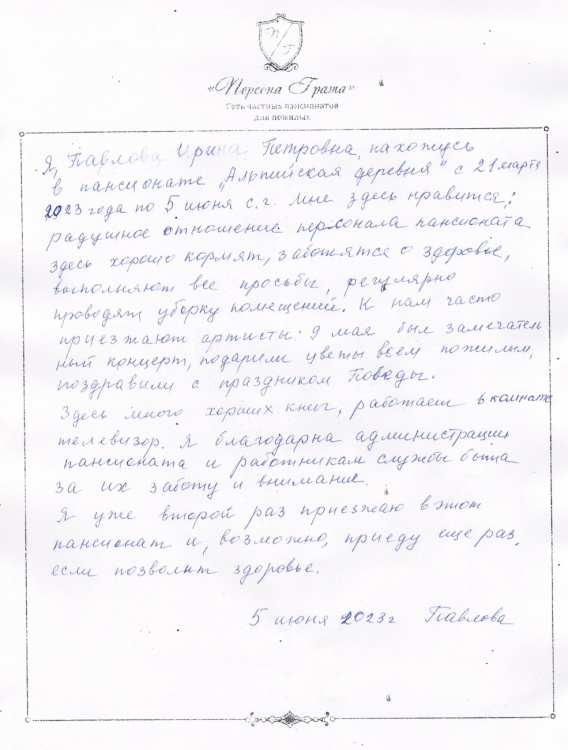 П Г
«Персона Грата»
Сеть частных пансионатов
для пожилых
Я, Павлова Ирина Петровна, нахожусь
в пансионате „Альпийская деревня" с 21 марта
2023 года по 5 июня с.г. Мне здесь нравится:
радушное отношение персонала пансионата
здесь хорошо кормят, заботятся о здоровье,
выполняют все просьбы, регулярно
проводят уборку помещений. К нам часто
приезжают артисты: 9 мая был замечатель
ный концерт, подарили цветы всем пожилым,
поздравили с праздником Победы.
Здесь много хорших книг, работает в комнате
телевизор. Я благодарна администрации
пансионата и работникам службы быта
за их заботу и внимание.
Я уже второй раз приезжаю в этот
пансионат и, возможно, приеду еще раз,
если позволит здоровье.
5 июня 2023г Павлова